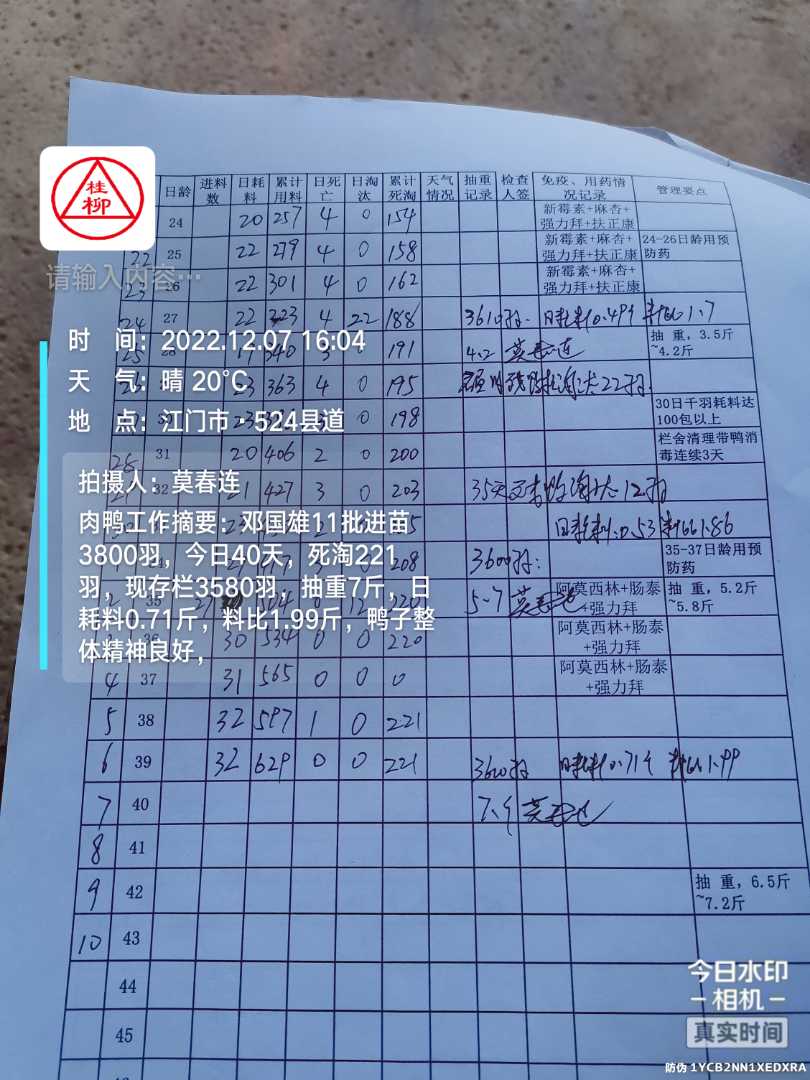 桂
柳
请输入内容…
日龄 进料数 日耗料 累计用料 日死亡 日淘汰 累计死淘 天气情况 抽重记录 检查人签 免疫、用药情况记录 管理要点
24 20 257 4 0 154 新霉素+麻杏+强力拜+扶正康
22 25 22 279 4 0 158 新霉素+麻杏+强力拜+扶正康 24-26日龄用预防药
23 26 22 301 4 0 162 新霉素+麻杏+强力拜+扶正康
24 27 22 323 4 22 188 3610羽 日耗料0.49斤 料比1.7
191 4.2 莫春连 抽 重，3.5斤~4.2斤
23 363 4 0 195
0 198 30日千羽耗料达100包以上
28 31 20 406 2 0 200 栏舍清理带鸭消毒连续3天
32 21 427 3 0 203 35天
日耗料0.53 料比1.86
208 3600羽 35-37日龄用预防药
35 5.7 莫春连 阿莫西林+肠泰+强力拜 抽 重，5.2斤~5.8斤
36 30 534 0 0 220 阿莫西林+肠泰+强力拜
4 37 31 565 0 0 0 阿莫西林+肠泰+强力拜
5 38 32 597 1 0 221
6 39 32 629 0 0 221 3600羽 日耗料0.71斤 料比1.99
7 40 7斤 莫春连
8 41
9 42 抽 重，6.5斤~7.2斤
10 43
44
45
时 间：2022.12.07 16:04
天 气：晴 20℃
地 点：江门市·524县道
拍摄人：莫春连
肉鸭工作摘要：邓国雄11批进苗
3800羽，今日40天，死淘221
羽，现存栏3580羽，抽重7斤，日
耗料0.71斤，料比1.99斤，鸭子整
体精神良好，
今日水印
-相机-
真实时间
防伪 1YCB2NN1XEDXRA